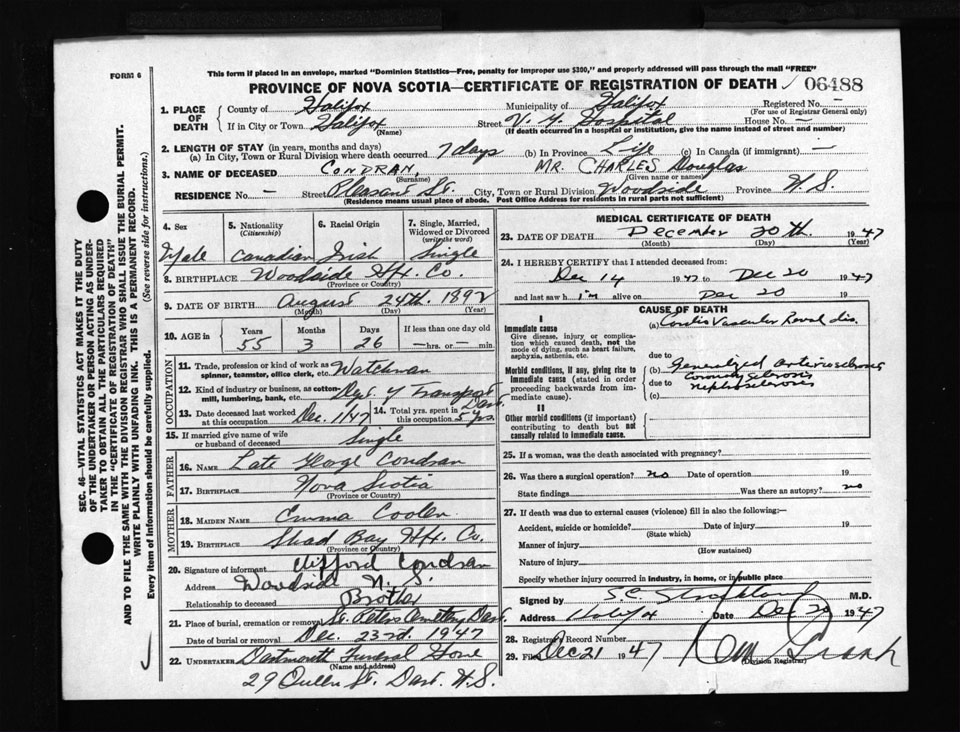 FORM 6
This form if placed in an envelope, marked "Dominion Statistics—Free, penalty for improper use $300," and properly addressed will pass through the mail "FREE"
PROVINCE OF NOVA SCOTIA—CERTIFICATE OF REGISTRATION OF DEATH 06488
1. PLACE OF DEATH County of Halifax Municipality of Halifax Registered No. —
(For use of Registrar General only)
If in City or Town Halifax Street V. G. Hospital House No. —
(Name) (If death occurred in a hospital or institution, give the name instead of street and number)
2. LENGTH OF STAY (in years, months and days)
(a) In City, Town or Rural Division where death occurred 7 days (b) In Province Life (c) In Canada (if immigrant) —
3. NAME OF DECEASED CONDRAN, MR. CHARLES Douglas
(Surname) (Given name or names)
RESIDENCE No. — Street Pleasant St. City, Town or Rural Division Woodside Province N.S.
(Residence means usual place of abode. Post Office Address for residents in rural parts not sufficient)
4. Sex 5. Nationality (Citizenship) 6. Racial Origin 7. Single, Married, Widowed or Divorced (write the word)
Male Canadian Irish Single
8. BIRTHPLACE Woodside Hfx. Co.
(Province or Country)
9. DATE OF BIRTH August 24th. 1892
(Month) (Day) (Year)
10. AGE in Years Months Days If less than one day old
55 3 26 —hrs. or — min.
OCCUPATION
11. Trade, profession or kind of work as spinner, teamster, office clerk, etc. Watchman
12. Kind of industry or business, as cotton-mill, lumbering, bank, etc. Dept. of Transport Dart.
13. Date deceased last worked at this occupation Dec. 1/47 14. Total yrs. spent in this occupation 5 yrs.
15. If married give name of wife or husband of deceased Single
FATHER
16. NAME Late George Condran
17. BIRTHPLACE Nova Scotia
(Province or Country)
MOTHER
18. MAIDEN NAME Emma Coolen
19. BIRTHPLACE Shad Bay Hfx. Co.
(Province or Country)
20. Signature of informant Clifford Condran
Address Woodside N. S.
Relationship to deceased Brother
21. Place of burial, cremation or removal St. Peters Cemetery Dart.
Date of burial or removal Dec. 23rd. 1947
22. UNDERTAKER Dartmouth Funeral Home
(Name and address)
29 Queen St. Dart. N.S.
MEDICAL CERTIFICATE OF DEATH
23. DATE OF DEATH December 20th. 1947
(Month) (Day) (Year)
24. I HEREBY CERTIFY that I attended deceased from:
Dec 14 1947 to Dec 20 1947
and last saw him alive on Dec 20 19
CAUSE OF DEATH
I
Immediate cause
Give disease, injury or complication which caused death, not the mode of dying, such as heart failure, asphyxia, asthenia, etc.
(a) Cardio Vascular Renal dis.
due to
Morbid conditions, if any, giving rise to immediate cause (stated in order proceeding backwards from immediate cause).
(b) Generalized arteriosclerosis
Coronary sclerosis
due to nephrosclerosis
(c)
II
Other morbid conditions (if important) contributing to death but not causally related to immediate cause.
25. If a woman, was the death associated with pregnancy?
26. Was there a surgical operation? no Date of operation 19
State findings Was there an autopsy? no
27. If death was due to external causes (violence) fill in also the following:—
Accident, suicide or homicide? Date of injury 19
(State which)
Manner of injury
(How sustained)
Nature of injury
Specify whether injury occurred in industry, in home, or in public place
Signed by S.C. M.D.
Address Halifax Date Dec 20 1947
28. Registrar's Record Number
29. Filed Dec 21 1947
(Division Registrar)
SEC. 46—VITAL STATISTICS ACT MAKES IT THE DUTY OF THE UNDERTAKER OR PERSON ACTING AS UNDERTAKER TO OBTAIN ALL THE PARTICULARS REQUIRED IN THE "CERTIFICATE OF REGISTRATION OF DEATH"
AND TO FILE THE SAME WITH THE DIVISION REGISTRAR WHO SHALL ISSUE THE BURIAL PERMIT.
WRITE PLAINLY WITH UNFADING INK. THIS IS A PERMANENT RECORD.
Every item of Information should be carefully supplied. (See reverse side for instructions.)